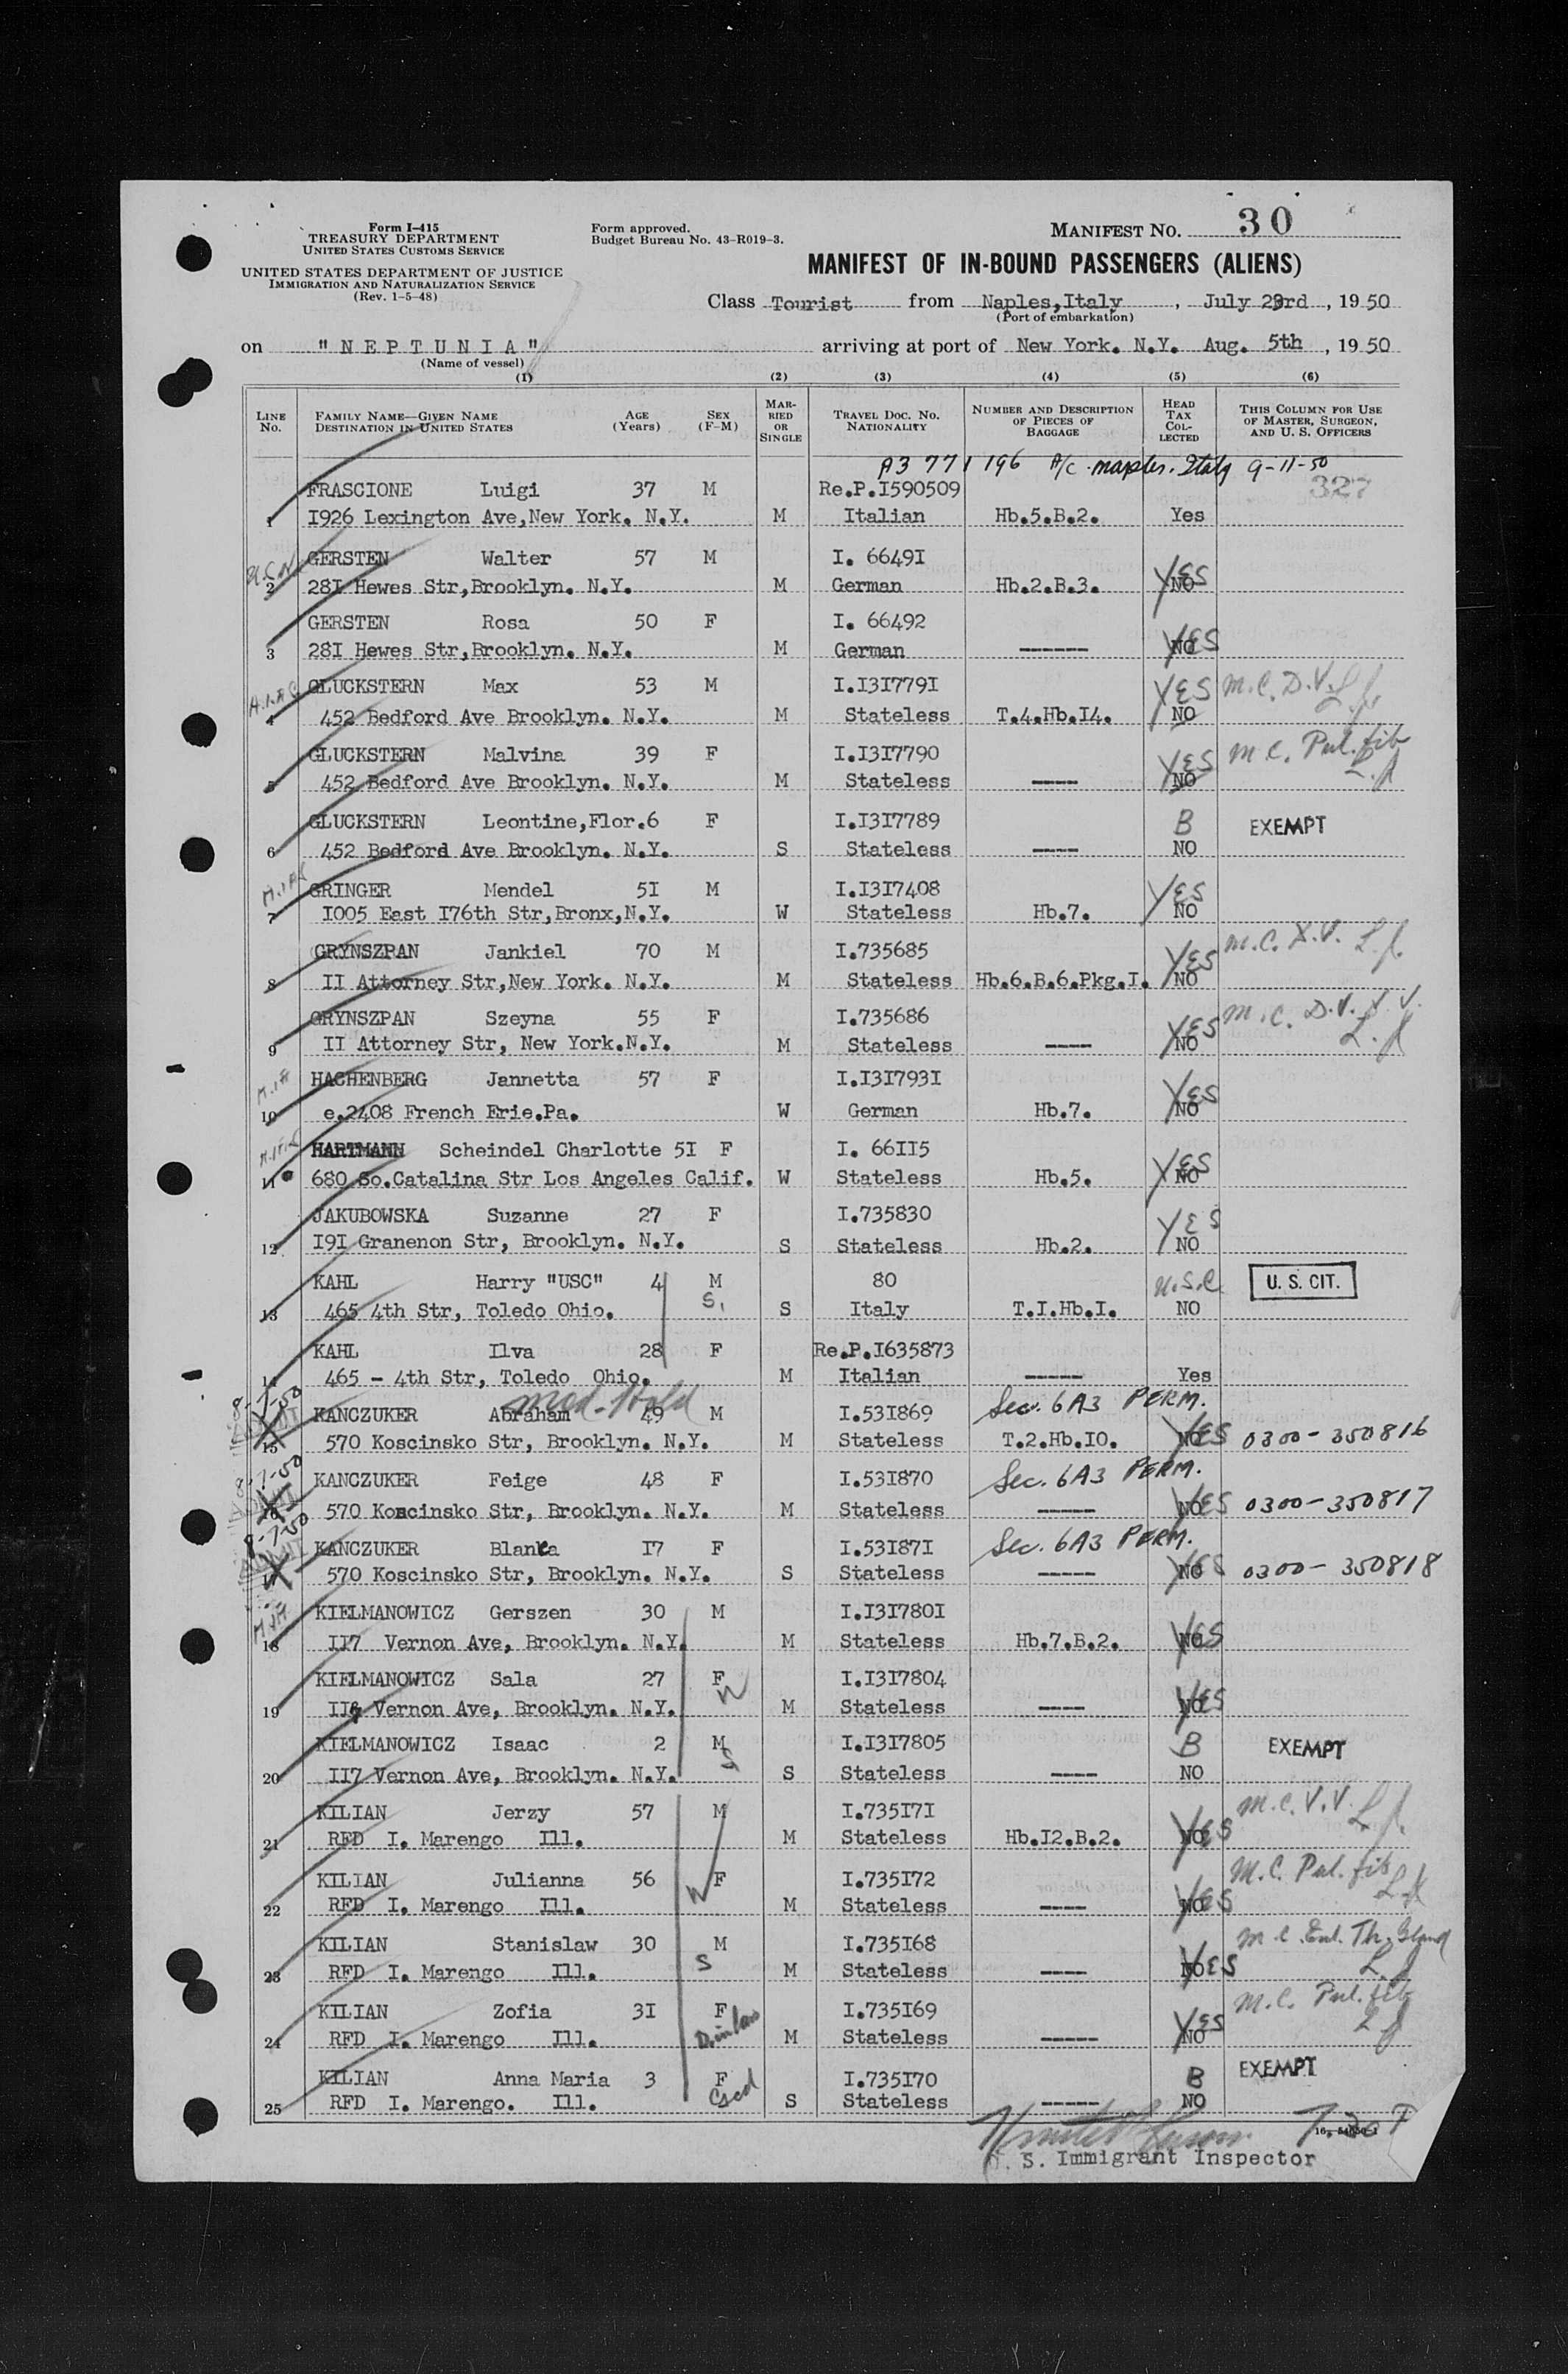 Form I-415
TREASURY DEPARTMENT
UNITED STATES CUSTOMS SERVICE
UNITED STATES DEPARTMENT OF JUSTICE
IMMIGRATION AND NATURALIZATION SERVICE
(Rev. 1-5-48)
Form approved.
Budget Bureau No. 43-R019-3.
MANIFEST NO. 30
MANIFEST OF IN-BOUND PASSENGERS (ALIENS)
Class Tourist from Naples,Italy, July 23rd, 1950
(Port of embarkation)
on "NEPTUNIA" arriving at port of New York. N.Y. Aug. 5th, 1950
(Name of vessel)
(1) (2) (3) (4) (5) (6)
LINE NO. FAMILY NAME—GIVEN NAME DESTINATION IN UNITED STATES AGE (Years) SEX (F-M) MARRIED OR SINGLE TRAVEL DOC. NO. NATIONALITY NUMBER AND DESCRIPTION OF PIECES OF BAGGAGE HEAD TAX COLLECTED THIS COLUMN FOR USE OF MASTER, SURGEON, AND U. S. OFFICERS
A3 771 196 A/C Naples. Italy 9-11-50
FRASCIONE Luigi 37 M Re.P.I590509 327
1 I926 Lexington Ave,New York. N.Y. M Italian Hb.5.B.2. Yes
GERSTEN Walter 57 M I. 6649I YES
2 28I Hewes Str,Brooklyn. N.Y. M German Hb.2.B.3. NO
GERSTEN Rosa 50 F I. 66492 YES
3 28I Hewes Str,Brooklyn. N.Y. M German ------ NO
GLUCKSTERN Max 53 M I.I3I779I YES M.C. D.V.
4 452 Bedford Ave Brooklyn. N.Y. M Stateless T.4.Hb.I4. NO
GLUCKSTERN Malvina 39 F I.I3I7790 YES M.C. Pul. fib
5 452 Bedford Ave Brooklyn. N.Y. M Stateless ---- NO
GLUCKSTERN Leontine,Flor.6 F I.I3I7789 B EXEMPT
6 452 Bedford Ave Brooklyn. N.Y. S Stateless ---- NO
GRINGER Mendel 5I M I.I3I7408 YES
7 I005 East I76th Str,Bronx,N.Y. W Stateless Hb.7. NO
GRYNSZPAN Jankiel 70 M I.735685 YES M.C. V.V.
8 II Attorney Str,New York. N.Y. M Stateless Hb.6.B.6.Pkg.I. NO
GRYNSZPAN Szeyna 55 F I.735686 YES M.C. D.V. V.V.
9 II Attorney Str, New York.N.Y. M Stateless ---- NO
HACHENBERG Jannetta 57 F I.I3I793I YES
10 e.2408 French Erie.Pa. W German Hb.7. NO
HARTMANN Scheindel Charlotte 5I F I. 66II5 YES
11 680 So.Catalina Str Los Angeles Calif. W Stateless Hb.5. NO
JAKUBOWSKA Suzanne 27 F I.735830 YES
12 I9I Granenon Str, Brooklyn. N.Y. S Stateless Hb.2. NO
KAHL Harry "USC" 4 M S. 80 U.S.C. U. S. CIT.
13 465 4th Str, Toledo Ohio. S Italy T.I.Hb.I. NO
KAHL Ilva 28 F Re.P.I635873
14 465 - 4th Str, Toledo Ohio. M Italian ----- Yes
8-7-50 Med. Hold
KANCZUKER Abraham 49 M I.531869 Sec. 6A3 PERM.
15 570 Koscinsko Str, Brooklyn. N.Y. M Stateless T.2.Hb.IO. NO YES 0300-350816
8-7-50
KANCZUKER Feige 48 F I.531870 Sec. 6A3 PERM.
16 570 Koscinsko Str, Brooklyn. N.Y. M Stateless ----- NO YES 0300-350817
8-7-50
KANCZUKER Blanca I7 F I.53I87I Sec. 6A3 PERM.
17 570 Koscinsko Str, Brooklyn. N.Y. S Stateless ----- NO YES 0300-350818
KIELMANOWICZ Gerszen 30 M I.I3I780I
18 II7 Vernon Ave, Brooklyn. N.Y. M Stateless Hb.7.B.2. NO YES
KIELMANOWICZ Sala 27 F W I.I3I7804
19 II7 Vernon Ave, Brooklyn. N.Y. M Stateless ---- NO YES
KIELMANOWICZ Isaac 2 M S I.I3I7805 B EXEMPT
20 II7 Vernon Ave, Brooklyn. N.Y. S Stateless ---- NO
KILIAN Jerzy 57 M I.735I7I M.C. V.V.
21 RFD I. Marengo Ill. M Stateless Hb.I2.B.2. NO YES
KILIAN Julianna 56 W F I.735I72 M.C. Pul. fib
22 RFD I. Marengo Ill. M Stateless ---- NO YES
KILIAN Stanislaw 30 M S I.735I68 M.C. Enl. Th. Gland
23 RFD I. Marengo Ill. M Stateless ---- NO YES
KILIAN Zofia 3I F D.inlaw I.735I69 YES M.C. Pul. fib
24 RFD I. Marengo Ill. M Stateless ----- NO
KILIAN Anna Maria 3 F Gcd I.735I70 B EXEMPT
25 RFD I. Marengo. Ill. S Stateless ----- NO
S. Immigrant Inspector